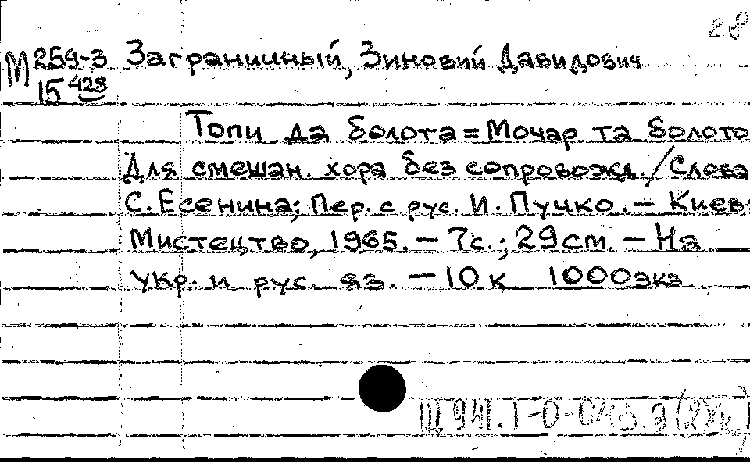 28
М 259-3 Заграничный, Зиновий Давидович
15 428
Топи да болота = Мочар та болото
Для смешан. хора без сопровожд. / Слова
С. Есенина; Пер. с рус. И. Пучко. — Киев:
Мистецтво, 1965. — 7с.; 29см. — На
укр. и рус. яз. — 10к 1000экз